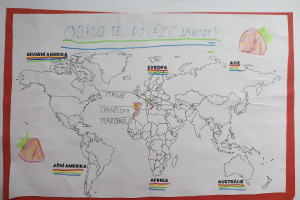 ODKUD SE DOVÁŽÍ JAHODY?
SEVERNÍ AMERIKA
EVROPA
ASIE
ITÁLIE
ŠPANĚLSKO
MAROKO
JIŽNÍ AMERIKA
AFRIKA
AUSTRÁLIE